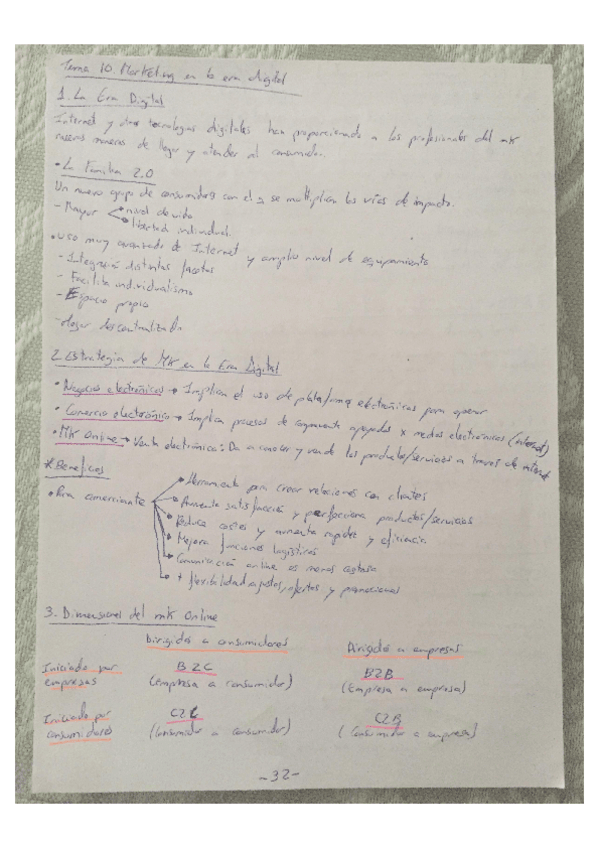 Tema 10. Marketing en la era digital
1. La Era Digital
Internet y otras tecnologías digitales han proporcionado a los profesionales del mk
nuevas maneras de llegar y atender al consumidor.
• La Familia 2.0
Un nuevo grupo de consumidores con el q se multiplican las vías de impacto.
- Mayor < • nivel de vida
• libertad individual.
• Uso muy avanzado de Internet y amplio nivel de equipamiento
- Integración distintas facetas
- Facilita individualismo
- Espacio propio
- Hogar descentralizado
2. Estrategia de MK en la Era Digital
• Negocios electrónicos → Implican el uso de plataformas electrónicas para operar
• Comercio electrónico → Implica procesos de compraventa apoyados x medios electrónicos (internet)
• MK Online → Venta electrónica: Da a conocer y vende los productos/servicios a través de internet
* Beneficios
• Para comerciante → Herramienta para crear relaciones con clientes
→ Aumenta satisfacción y perfecciona productos/servicios
→ Reduce costes y aumenta rapidez y eficiencia
→ Mejora funciones logísticas
→ Comunicación online es menos costosa
→ + flexibilidad ajustes, ofertas y promociones
3. Dimensiones del mk Online
Dirigidos a consumidores Dirigidos a empresas
Iniciado por B2C B2B
empresas (empresa a consumidor) (Empresa a empresa)
Iniciado por C2C C2B
consumidores (Consumidor a consumidor) (Consumidor a empresa)
-32-